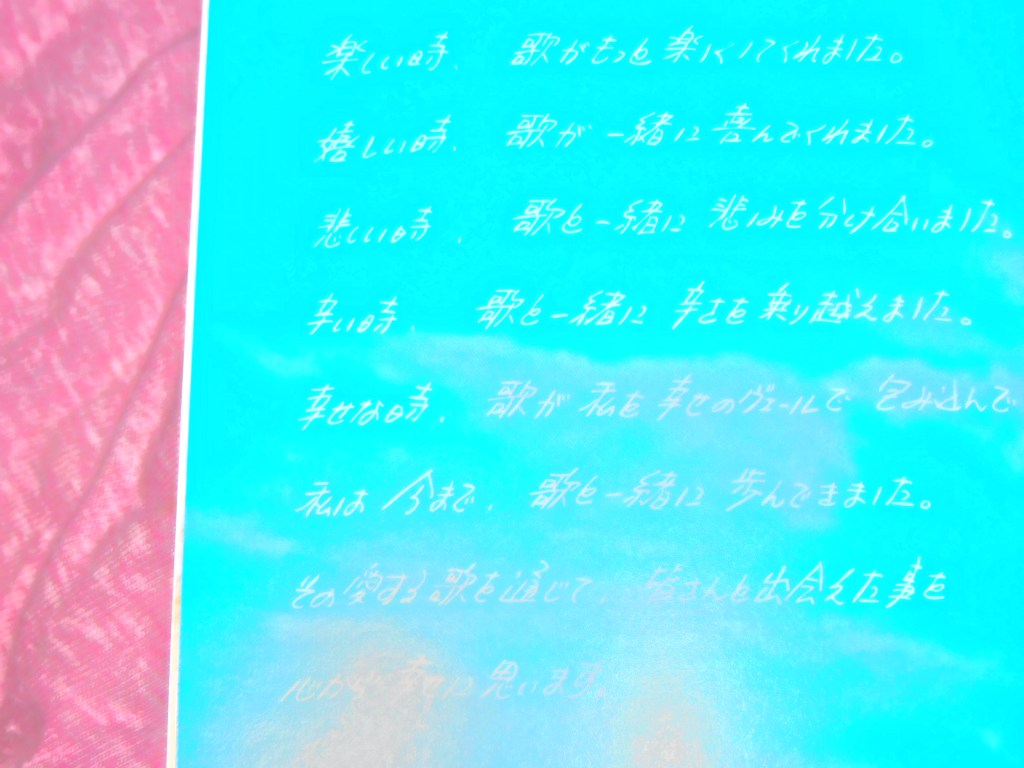 楽しい時、歌がもっと楽しくしてくれました。
嬉しい時、歌が一緒に喜んでくれました。
悲しい時、歌と一緒に悲しみを分け合いました。
辛い時、歌と一緒に辛さを乗り越えました。
幸せな時、歌が私を幸せのヴェールで包み込んで
私は今まで、歌と一緒に歩んできました。
その愛する歌を通じて、皆さんと出会えた事を
心から幸せに思います。